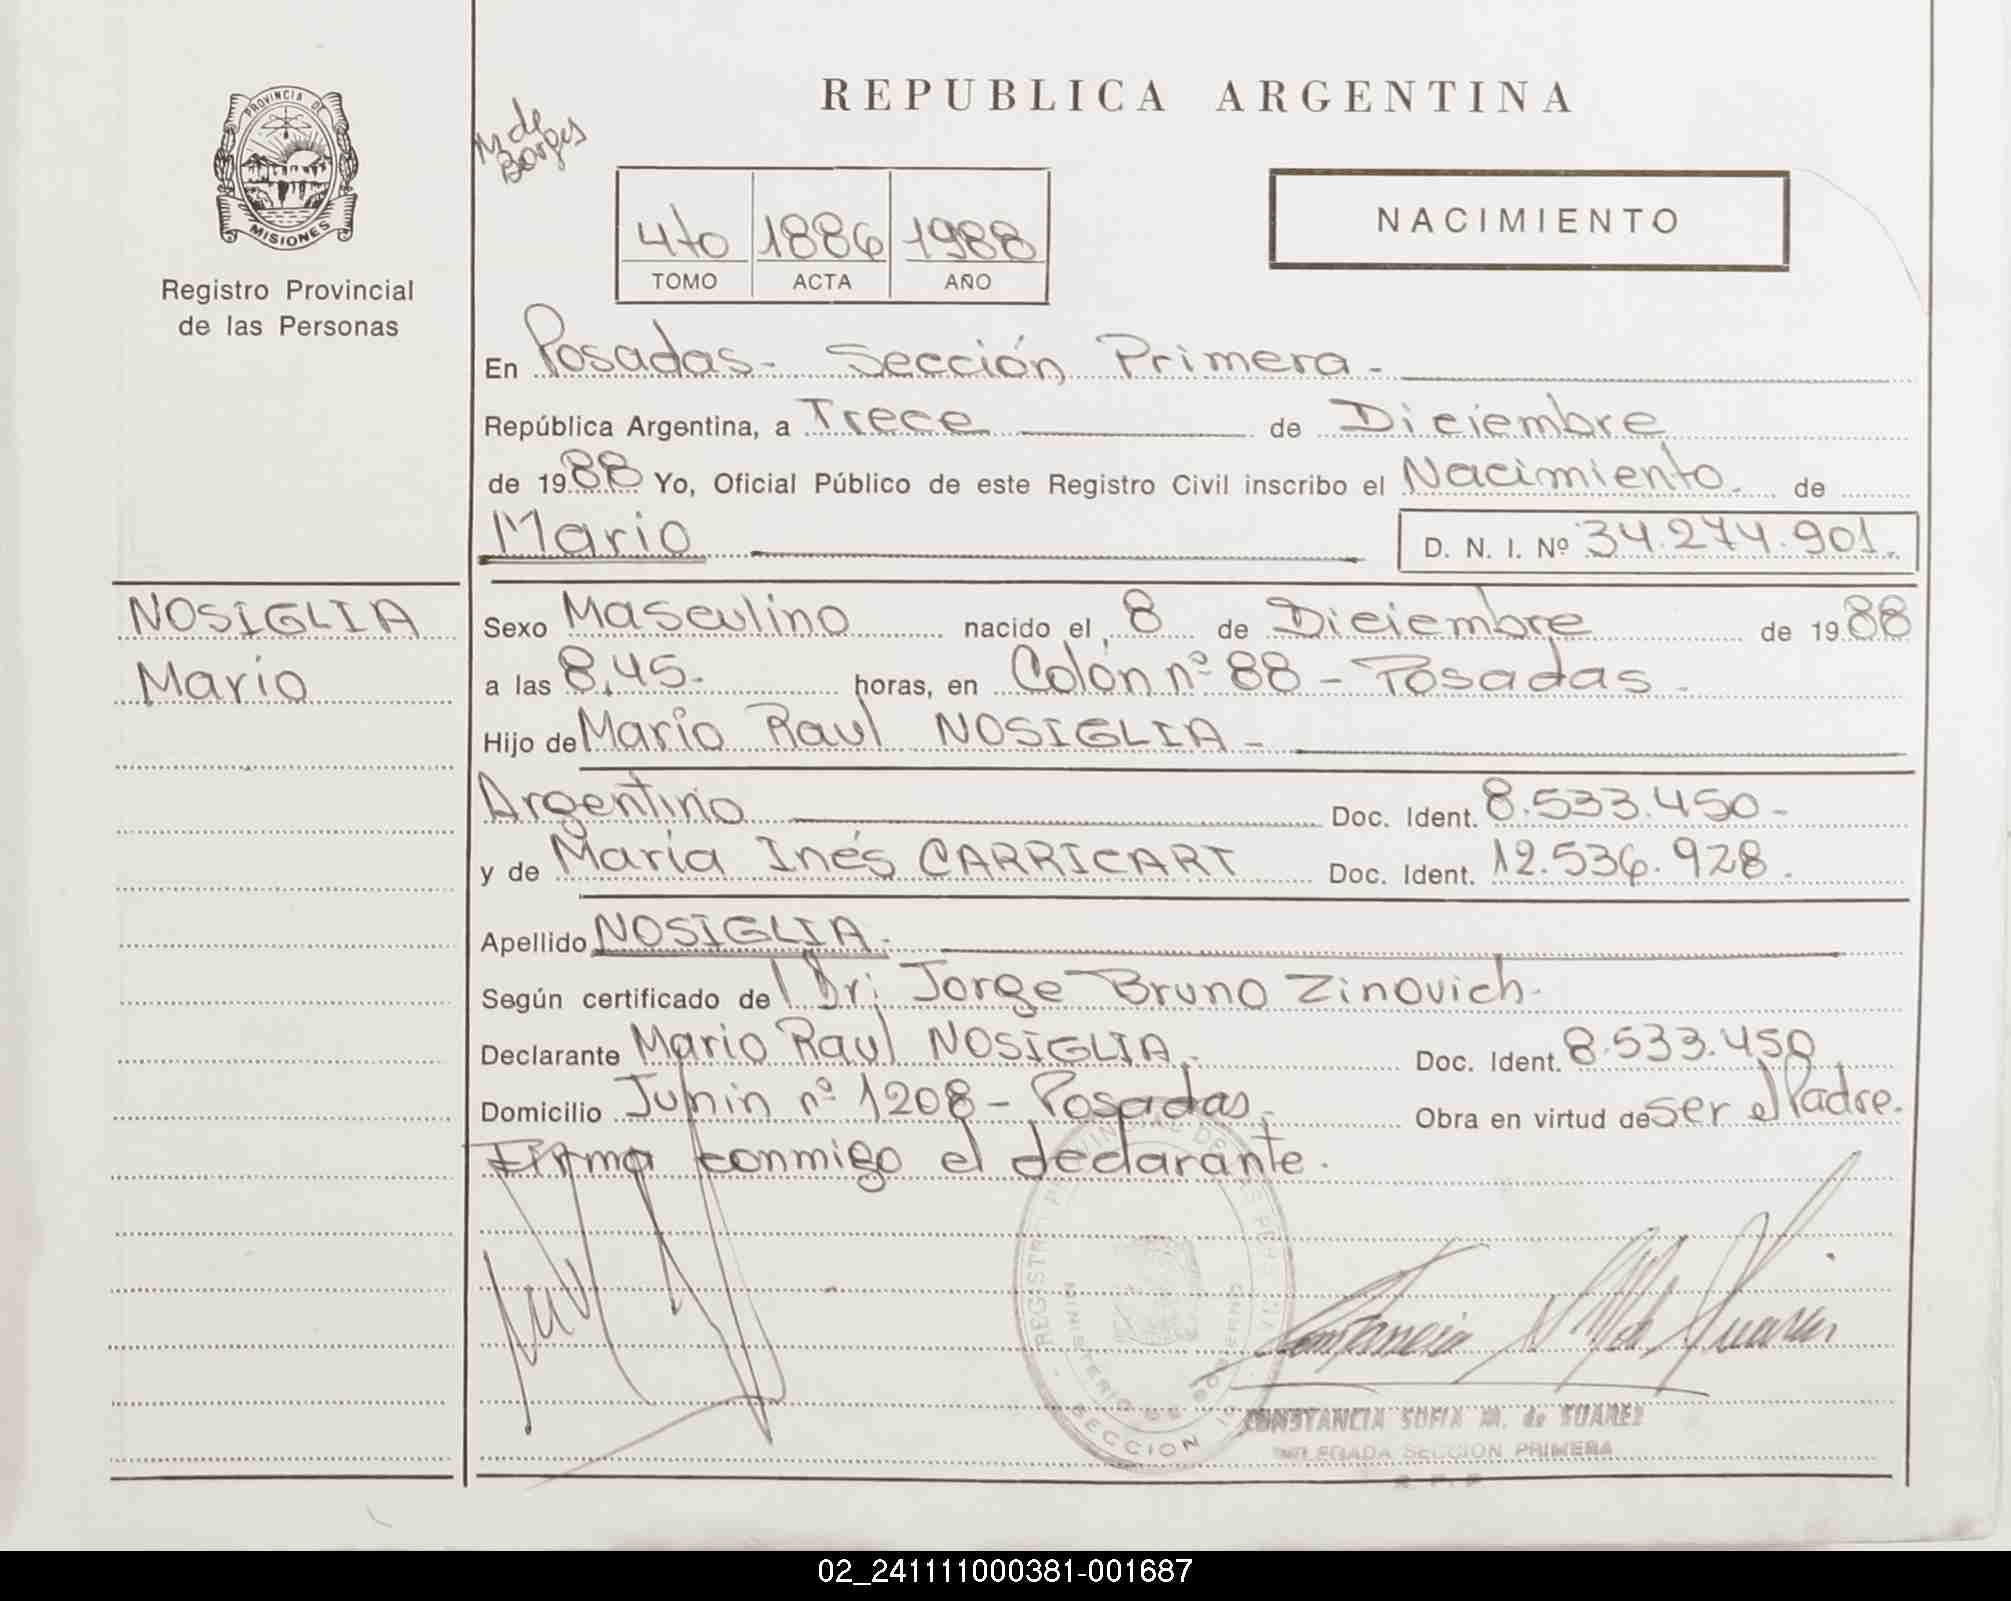 REPUBLICA ARGENTINA
PROVINCIA DE
MISIONES
Registro Provincial
de las Personas
M de
Borges
4to 1886 1988
TOMO ACTA AÑO
NACIMIENTO
En Posadas- Sección Primera-
República Argentina, a Trece de Diciembre
de 1988 Yo, Oficial Público de este Registro Civil inscribo el Nacimiento. de
Mario D. N. I. Nº 34.274.901.
NOSIGLIA
Mario
Sexo Masculino nacido el 8 de Diciembre de 1988
a las 8,45. horas, en Colón nº 88 - Posadas.
Hijo de Mario Raul NOSIGLIA-
Argentino Doc. Ident. 8.533.450-
y de María Inés CARRICART Doc. Ident. 12.536.928.
Apellido NOSIGLIA.
Según certificado de Dr: Jorge Bruno Zinovich.
Declarante Mario Raul NOSIGLIA. Doc. Ident. 8.533.450
Domicilio Junin nº 1208 - Posadas. Obra en virtud de ser el Padre.
Firma conmigo el declarante.
REGISTRO PROVINCIAL DE LAS PERSONAS
MINISTERIO DE GOBIERNO
SECCION 1
CONSTANCIA SOFIA M. de SUAREZ
DELEGADA SECCION PRIMERA
R. P. P.
02_241111000381-001687